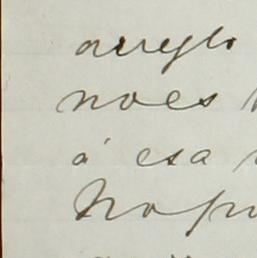 arreglo
no es
á esa
No pu